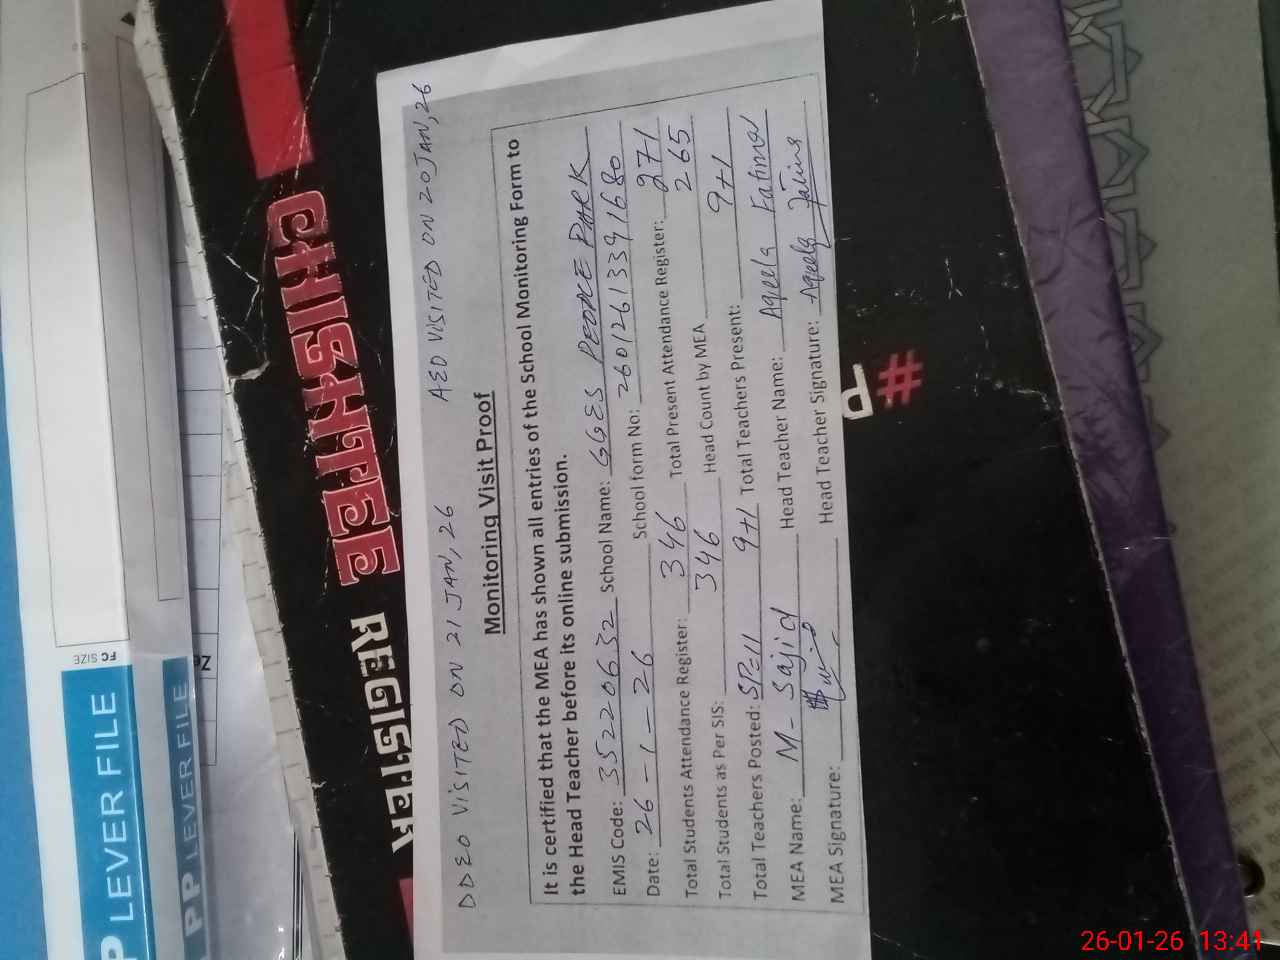 DDEO VISITED ON 21 JAN, 26 AEO VISITED ON 20 JAN, 26
Monitoring Visit Proof
It is certified that the MEA has shown all entries of the School Monitoring Form to
the Head Teacher before its online submission.
EMIS Code: 35220632 School Name: GGES PEOPLE PARK
Date: 26-1-26 School form No: 26012613391680
Total Students Attendance Register: 346 Total Present Attendance Register: 271
Total Students as Per SIS: 346 Head Count by MEA 265
Total Teachers Posted: SP=11 9+1 Total Teachers Present: 9+1
MEA Name: M- Sajid Head Teacher Name: Aqeela Fatima
MEA Signature: Head Teacher Signature: Aqeela Fatima
REGISTER
P#
P LEVER FILE
FC SIZE
PP LEVER FILE
26-01-26 13:41